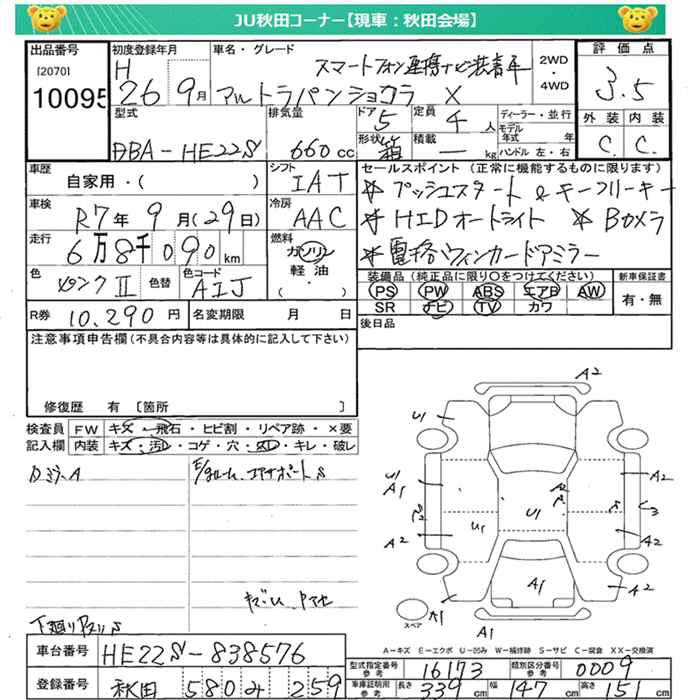 JU秋田コーナー【現車：秋田会場】
出品番号
[2070]
10095
初度登録年月
H
26 9月
車名・グレード
スマートフォン連携ナビ装着車
アルトラパンショコラ X
2WD
・
4WD
評価点
3.5
外装 内装
C. C.
型式
DBA-HE22S
排気量
660cc
ドア
5
形状
箱
定員
4人
積載
ー kg
ディーラー・並行
モデル年式 年
ハンドル 左・右
車歴
自家用・( )
シフト
IAT
車検
R7年9月(29日)
冷房
AAC
走行
6万8千090km
燃料
ガソリン
軽油
・
( )
色
ピンクII
色替
色コード
AIJ
R券 10,290円
名変期限 月 日
セールスポイント（正常に機能するものに限ります）
☆プッシュスタート&キーフリーキー
☆HIDオートライト ☆Bカメラ
☆電格ウィンカードアミラー
装備品（純正品に限り○をつけてください）
PS PW ABS エアB AW
SR ナビ TV カワ
新車保証書
有・無
後日品
注意事項申告欄（不具合内容等は具体的に記入して下さい）
修復歴 有 〔箇所 〕
検査員記入欄
FW キズ・飛石・ヒビ割・リペア跡・×要
内装 キズ・汚レ・コゲ・穴・スレ・キレ・破レ
ロミラーA
下廻りサビS
A2
U1
U1
A1
A2
U1
A2
A2
A2
A1
A1
A1
スペア
A-キズ E-エクボ U-凹み W-補修跡 S-サビ C-腐食 XX-交換済
車台番号 HE22S-838576
登録番号 秋田 580 み 259
型式指定番号 参考 16173
類別区分番号 参考 0009
車庫証明用 参考 長さ 339cm 幅 147cm 高さ 151cm